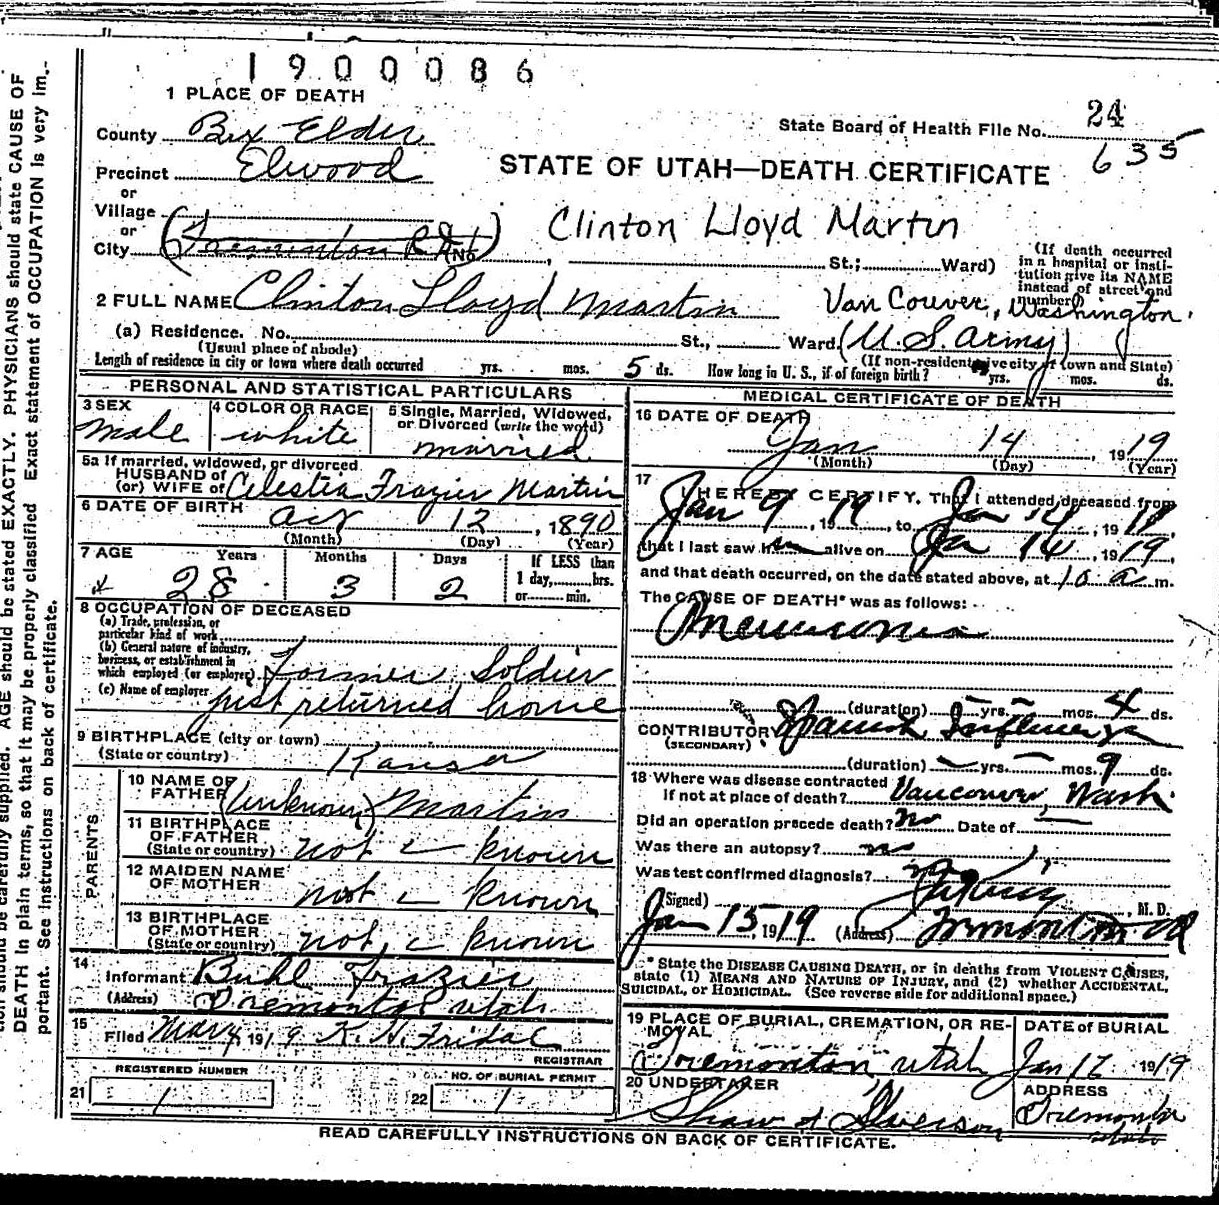 1900086
1 PLACE OF DEATH
County Box Elder
State Board of Health File No. 24
635
Precinct Elwood
STATE OF UTAH—DEATH CERTIFICATE
or
Village
or
City (Tremonton R.F.D. (No. St.; Ward)
Clinton Lloyd Martin
(If death occurred in a hospital or institution give its NAME instead of street and number)
2 FULL NAME Clinton Lloyd Martin
Van Couver, Washington.
(a) Residence. No. St., Ward. (U.S. Army)
(Usual place of abode)
(If non-resident give city or town and State)
Length of residence in city or town where death occurred yrs. mos. 5 ds. How long in U. S., if of foreign birth? yrs. mos. ds.
PERSONAL AND STATISTICAL PARTICULARS
3 SEX
male
4 COLOR OR RACE
white
5 Single, Married, Widowed, or Divorced (write the word)
married
5a If married, widowed, or divorced
HUSBAND of
(or) WIFE of Celestia Frazier Martin
6 DATE OF BIRTH Oct 12, 1890
(Month) (Day) (Year)
7 AGE Years Months Days If LESS than
28 3 2 1 day, hrs.
or min.
8 OCCUPATION OF DECEASED
(a) Trade, profession, or particular kind of work
(b) General nature of industry, business, or establishment in which employed (or employer) Former Soldier
(c) Name of employer just returned home
9 BIRTHPLACE (city or town)
(State or country) Kansas
PARENTS
10 NAME OF FATHER (unknown) Martin
11 BIRTHPLACE OF FATHER
(State or country) not known
12 MAIDEN NAME OF MOTHER not known
13 BIRTHPLACE OF MOTHER
(State or country) not known
14
Informant Buhl Frazier
(Address) Tremonton Utah
15
Filed 1919 K. H. Fridal
REGISTRAR
REGISTERED NUMBER
21 1
NO. OF BURIAL PERMIT
22 1
MEDICAL CERTIFICATE OF DEATH
16 DATE OF DEATH
Jan 14, 1919
(Month) (Day) (Year)
17
I HEREBY CERTIFY, That I attended deceased from
Jan 9, 1919, to Jan 14, 1919
that I last saw him alive on Jan 14, 1919,
and that death occurred, on the date stated above, at 10 a m.
The CAUSE OF DEATH* was as follows:
Pneumonia
(duration) yrs. mos. 4 ds.
CONTRIBUTORY Spanish Influenza
(SECONDARY)
(duration) yrs. mos. 9 ds.
18 Where was disease contracted
if not at place of death? Vancouver, Wash
Did an operation precede death? no Date of
Was there an autopsy? no
Was test confirmed diagnosis? no
(Signed) , M. D.
Jan 15, 1919 (Address) Tremonton
* State the DISEASE CAUSING DEATH, or in deaths from VIOLENT CAUSES, state (1) MEANS AND NATURE OF INJURY, and (2) whether ACCIDENTAL, SUICIDAL, or HOMICIDAL. (See reverse side for additional space.)
19 PLACE OF BURIAL, CREMATION, OR REMOVAL
Tremonton Utah
DATE of BURIAL
Jan 17 1919
20 UNDERTAKER
Shaw & Iverson
ADDRESS
Tremonton
Utah
READ CAREFULLY INSTRUCTIONS ON BACK OF CERTIFICATE.
tion should be carefully supplied. AGE should be stated EXACTLY. PHYSICIANS should state CAUSE OF
DEATH in plain terms, so that it may be properly classified Exact statement of OCCUPATION is very im-
portant. See instructions on back of certificate.